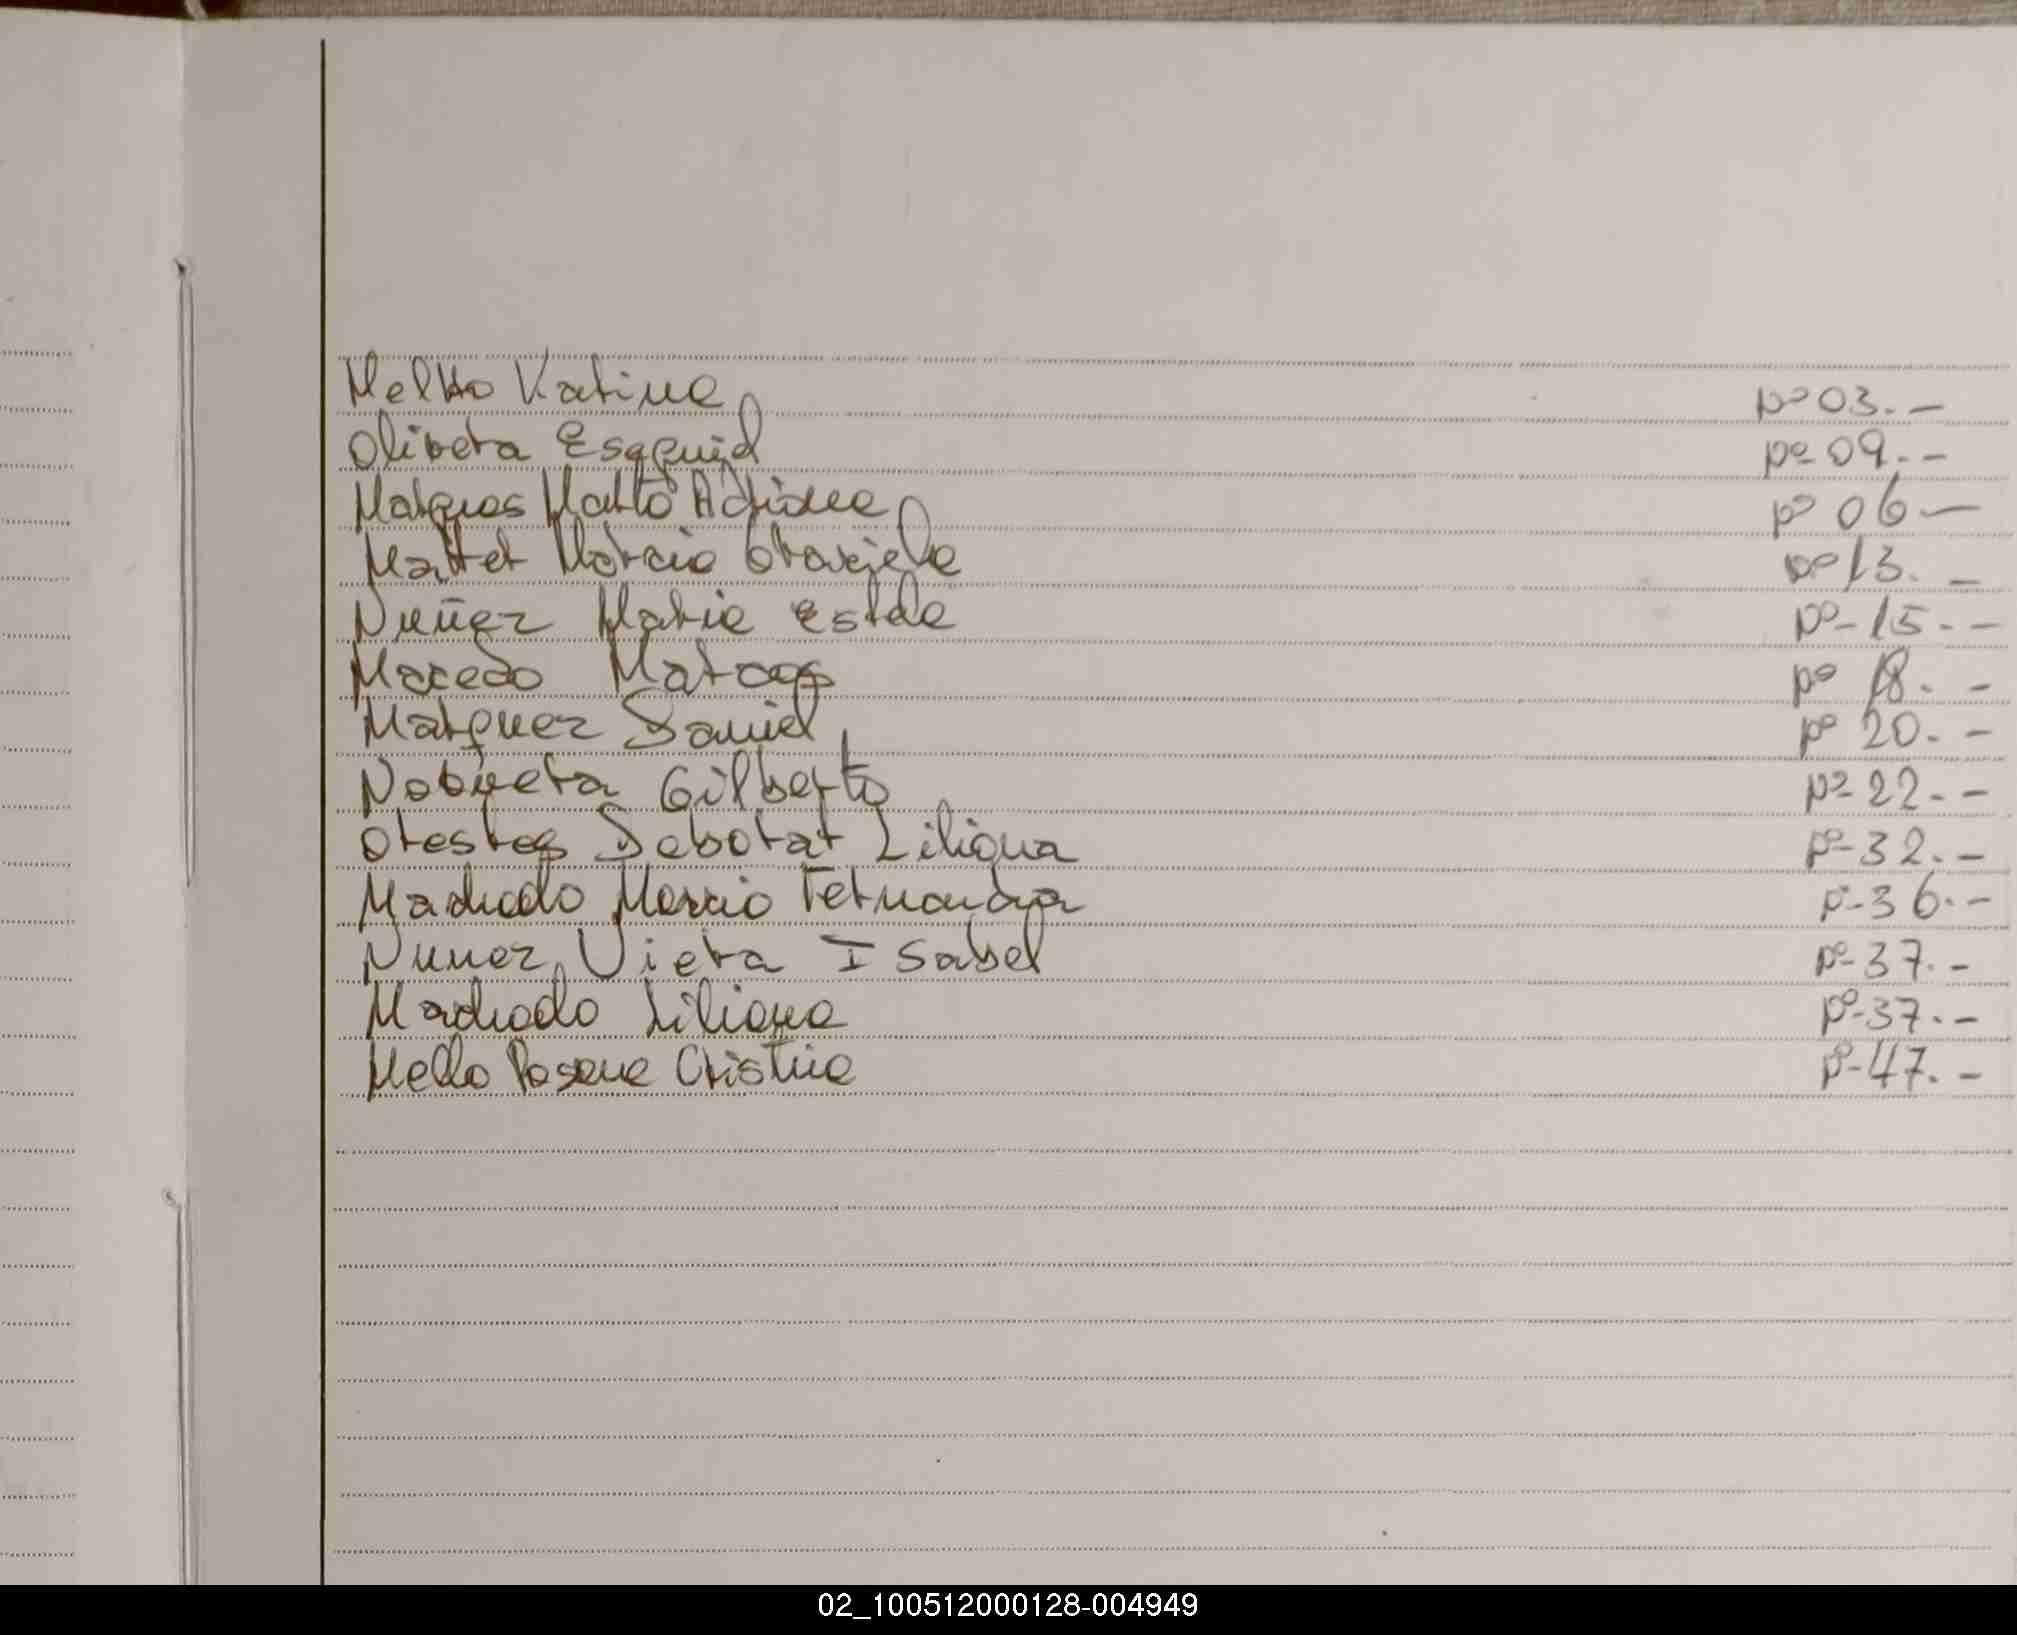 Mello Karina pº 03.-
Olivera Esequiel pº 09.-
Marques Marto Adriana pº 06-
Marter Marcia Graciela pº 13.-
Nuñez Maria Estela pº-15.-
Macedo Marcos pº 18.-
Marquez Daniel pº 20.-
Nobrera Gilberto pº-22.-
Orestes Deborar Liliana pº-32.-
Machado Marcia Fernanda pº-36.-
Nunez Viera Isabel pº-37.-
Machado Liliana pº-37.-
Mello Rosana Cristina pº-47.-
02_100512000128-004949